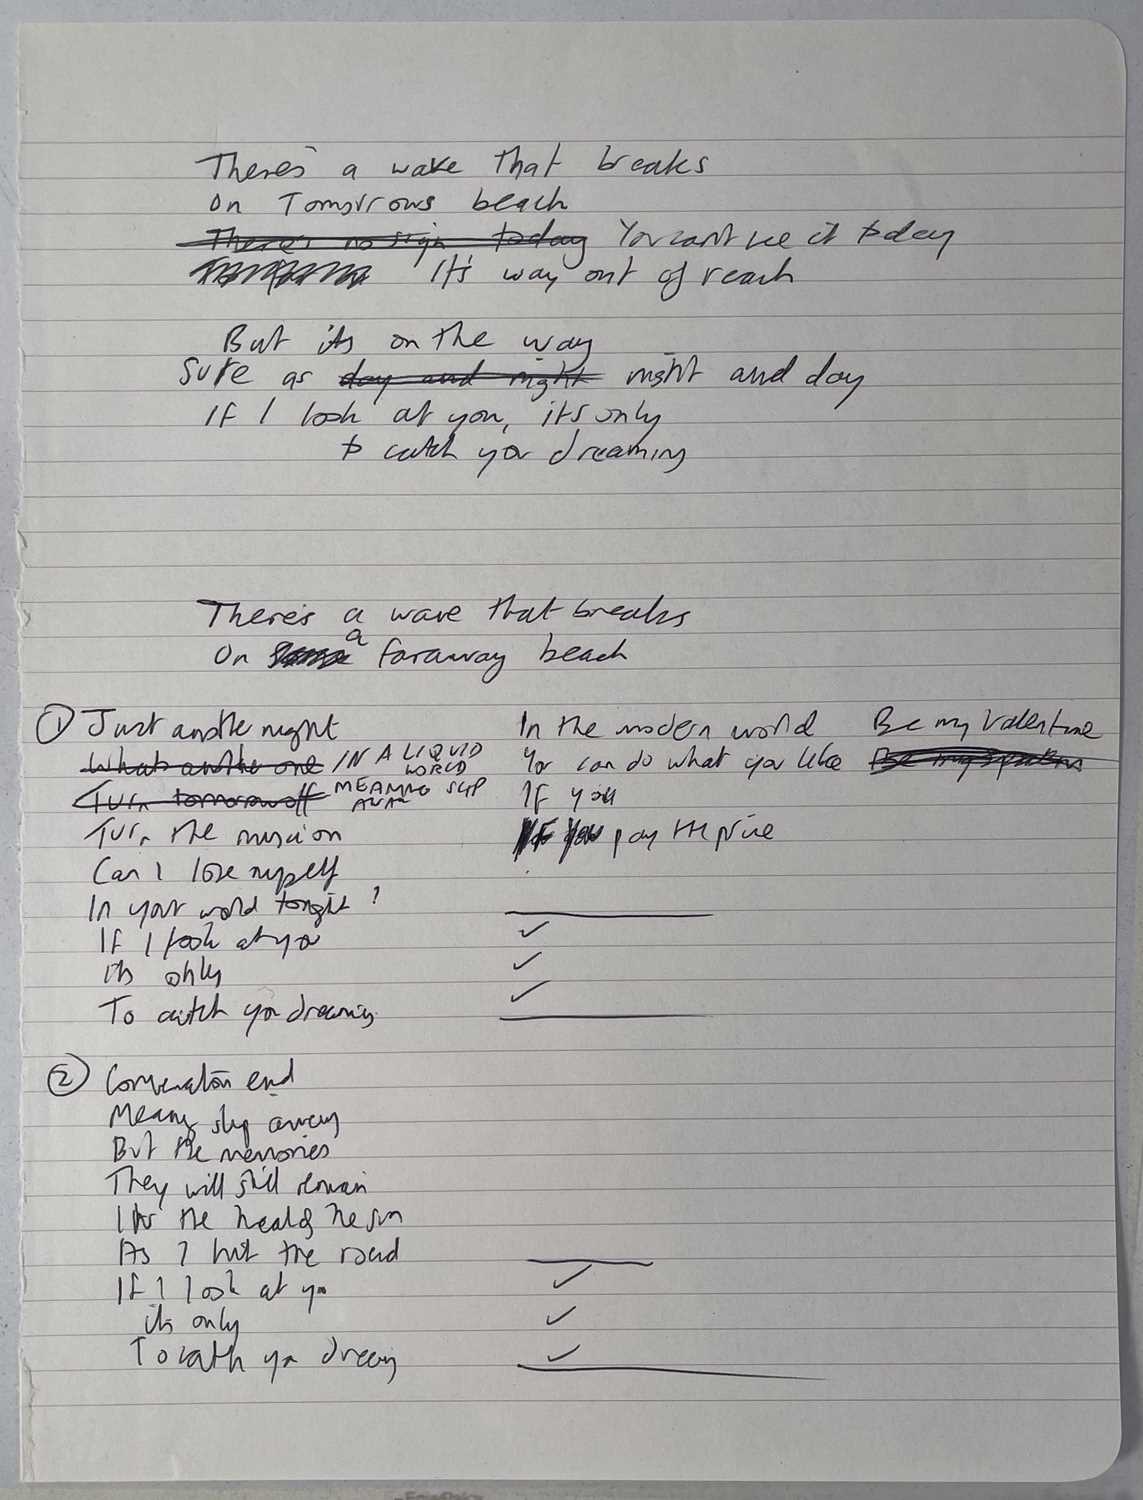 There's a wave that breaks
On Tomorrows beach
There's no sign today You cant see it today
It's way out of reach
But its on the way
Sure as day and night night and day
If I look at you, its only
to catch you dreaming
There's a wave that breaks
On a faraway beach
① Just another night
Whats another one IN A LIQUID WORLD
Turn tomorrow off MEANING SLIP AWAY
Turn the music on
Can I lose myself
In your world tonight?
If I look at you
its only
To catch you dreaming
In the modern world Be my Valentine
You can do what you like
If you
If you pay the price
② Conversation end
Meaning slip away
But the memories
They will still remain
the heat of the sun
As I hit the road
If I look at you
its only
To catch you dreaming